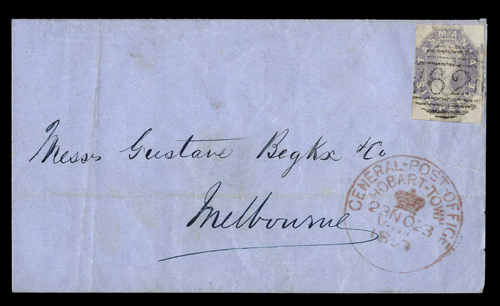 TASMANIA
62
Messrs Gustave Begkx & Co
Melbourne
GENERAL-POST OFFICE
HOBART-TOWN
23 NO 23